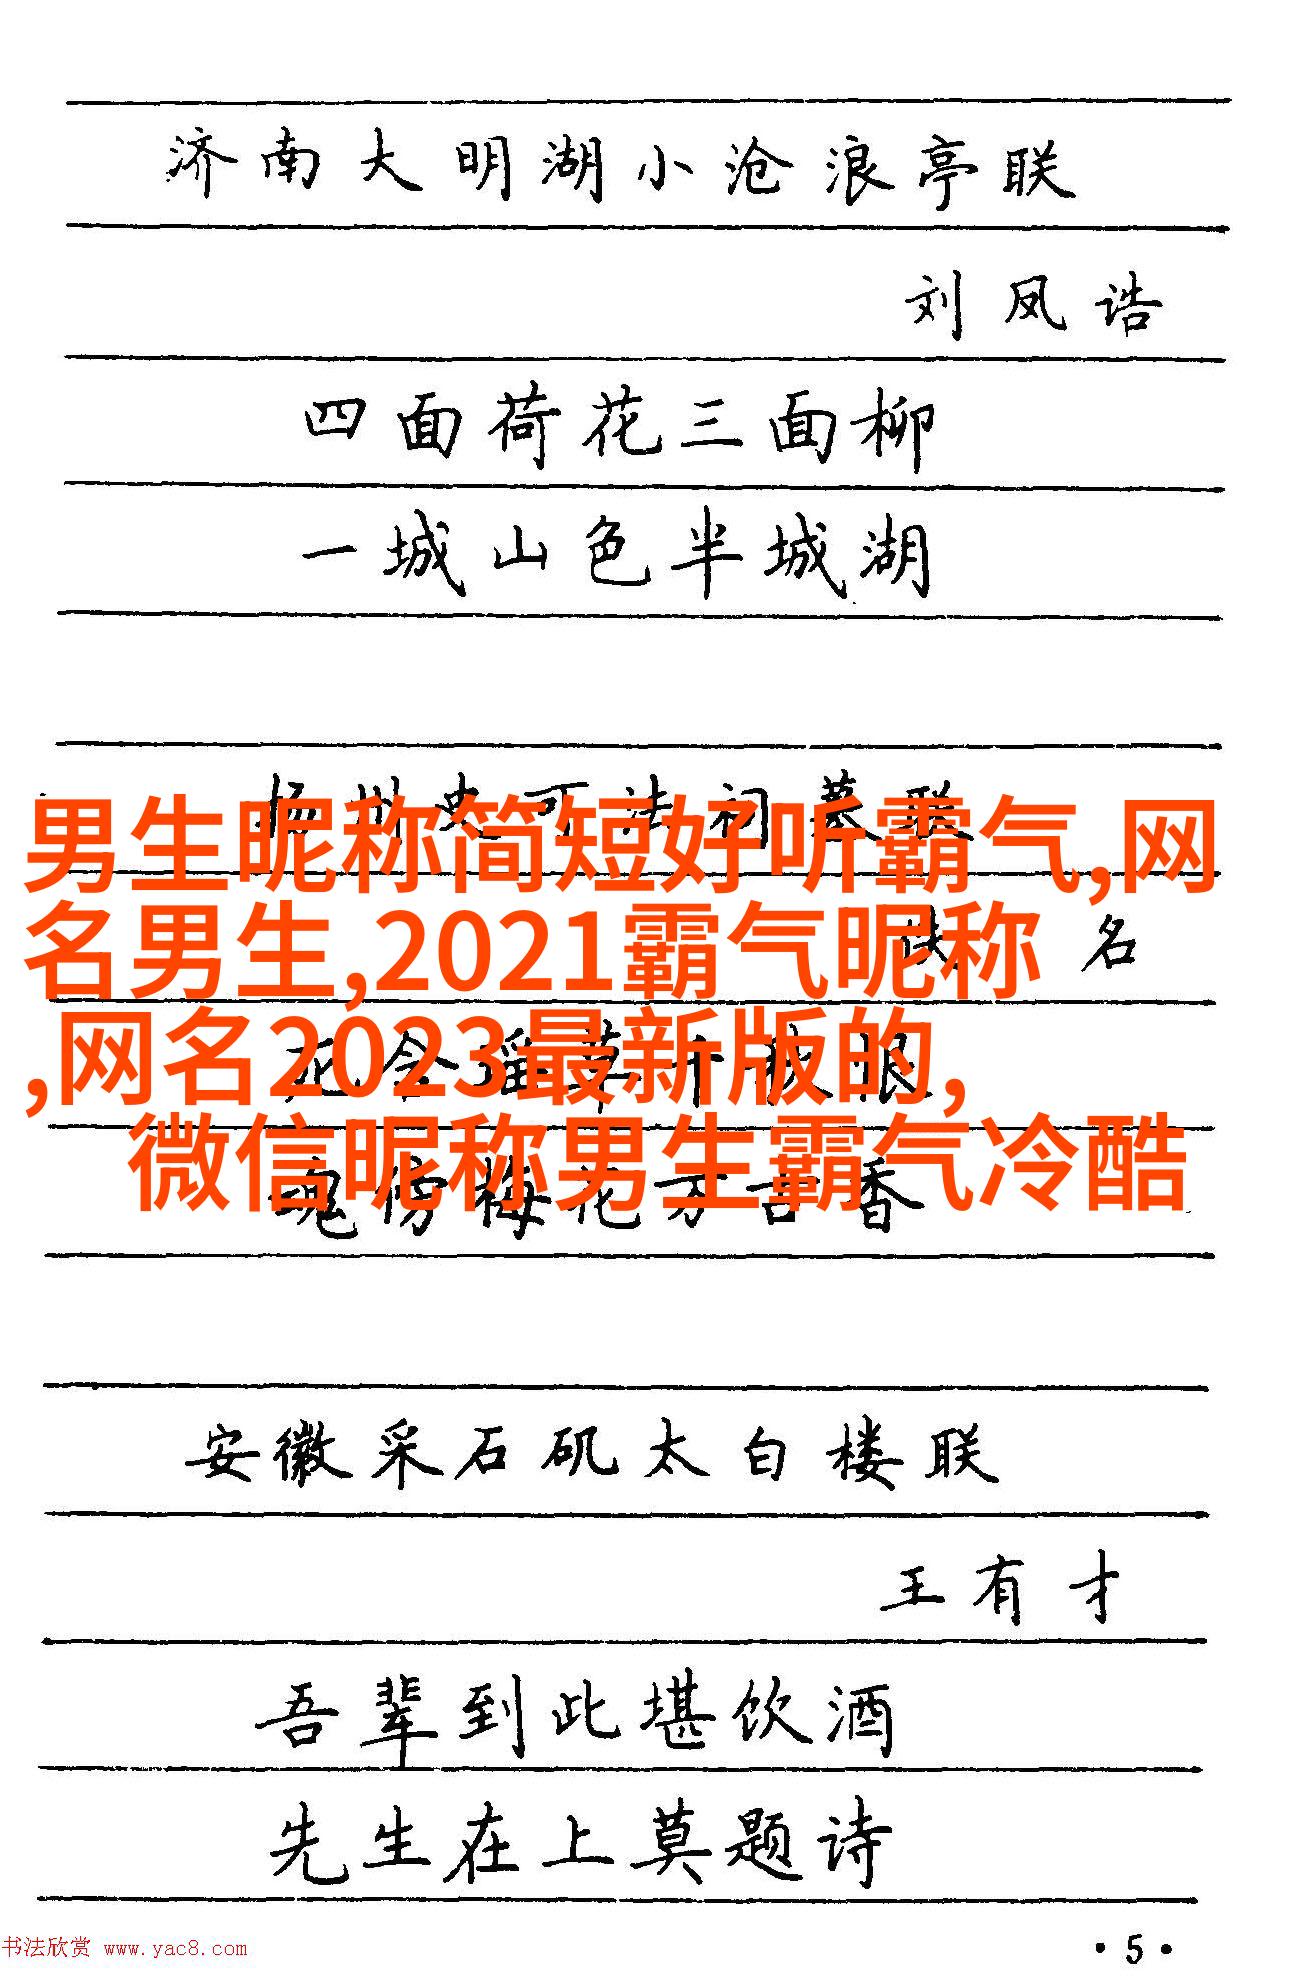 济南大明湖小沧浪亭联
刘凤诰
四面荷花三面柳
一城山色半城湖
扬州史可法祠墓联
男生昵称简短好听霸气,网
名男生,2021霸气昵称
佚名
,网名2023最新版的,
微信昵称男生霸气冷酷
魂傍梅花万古香
安徽采石矶太白楼联
王有才
吾辈到此堪饮酒
先生在上莫题诗
书法欣赏 www.yac8.com
·5·